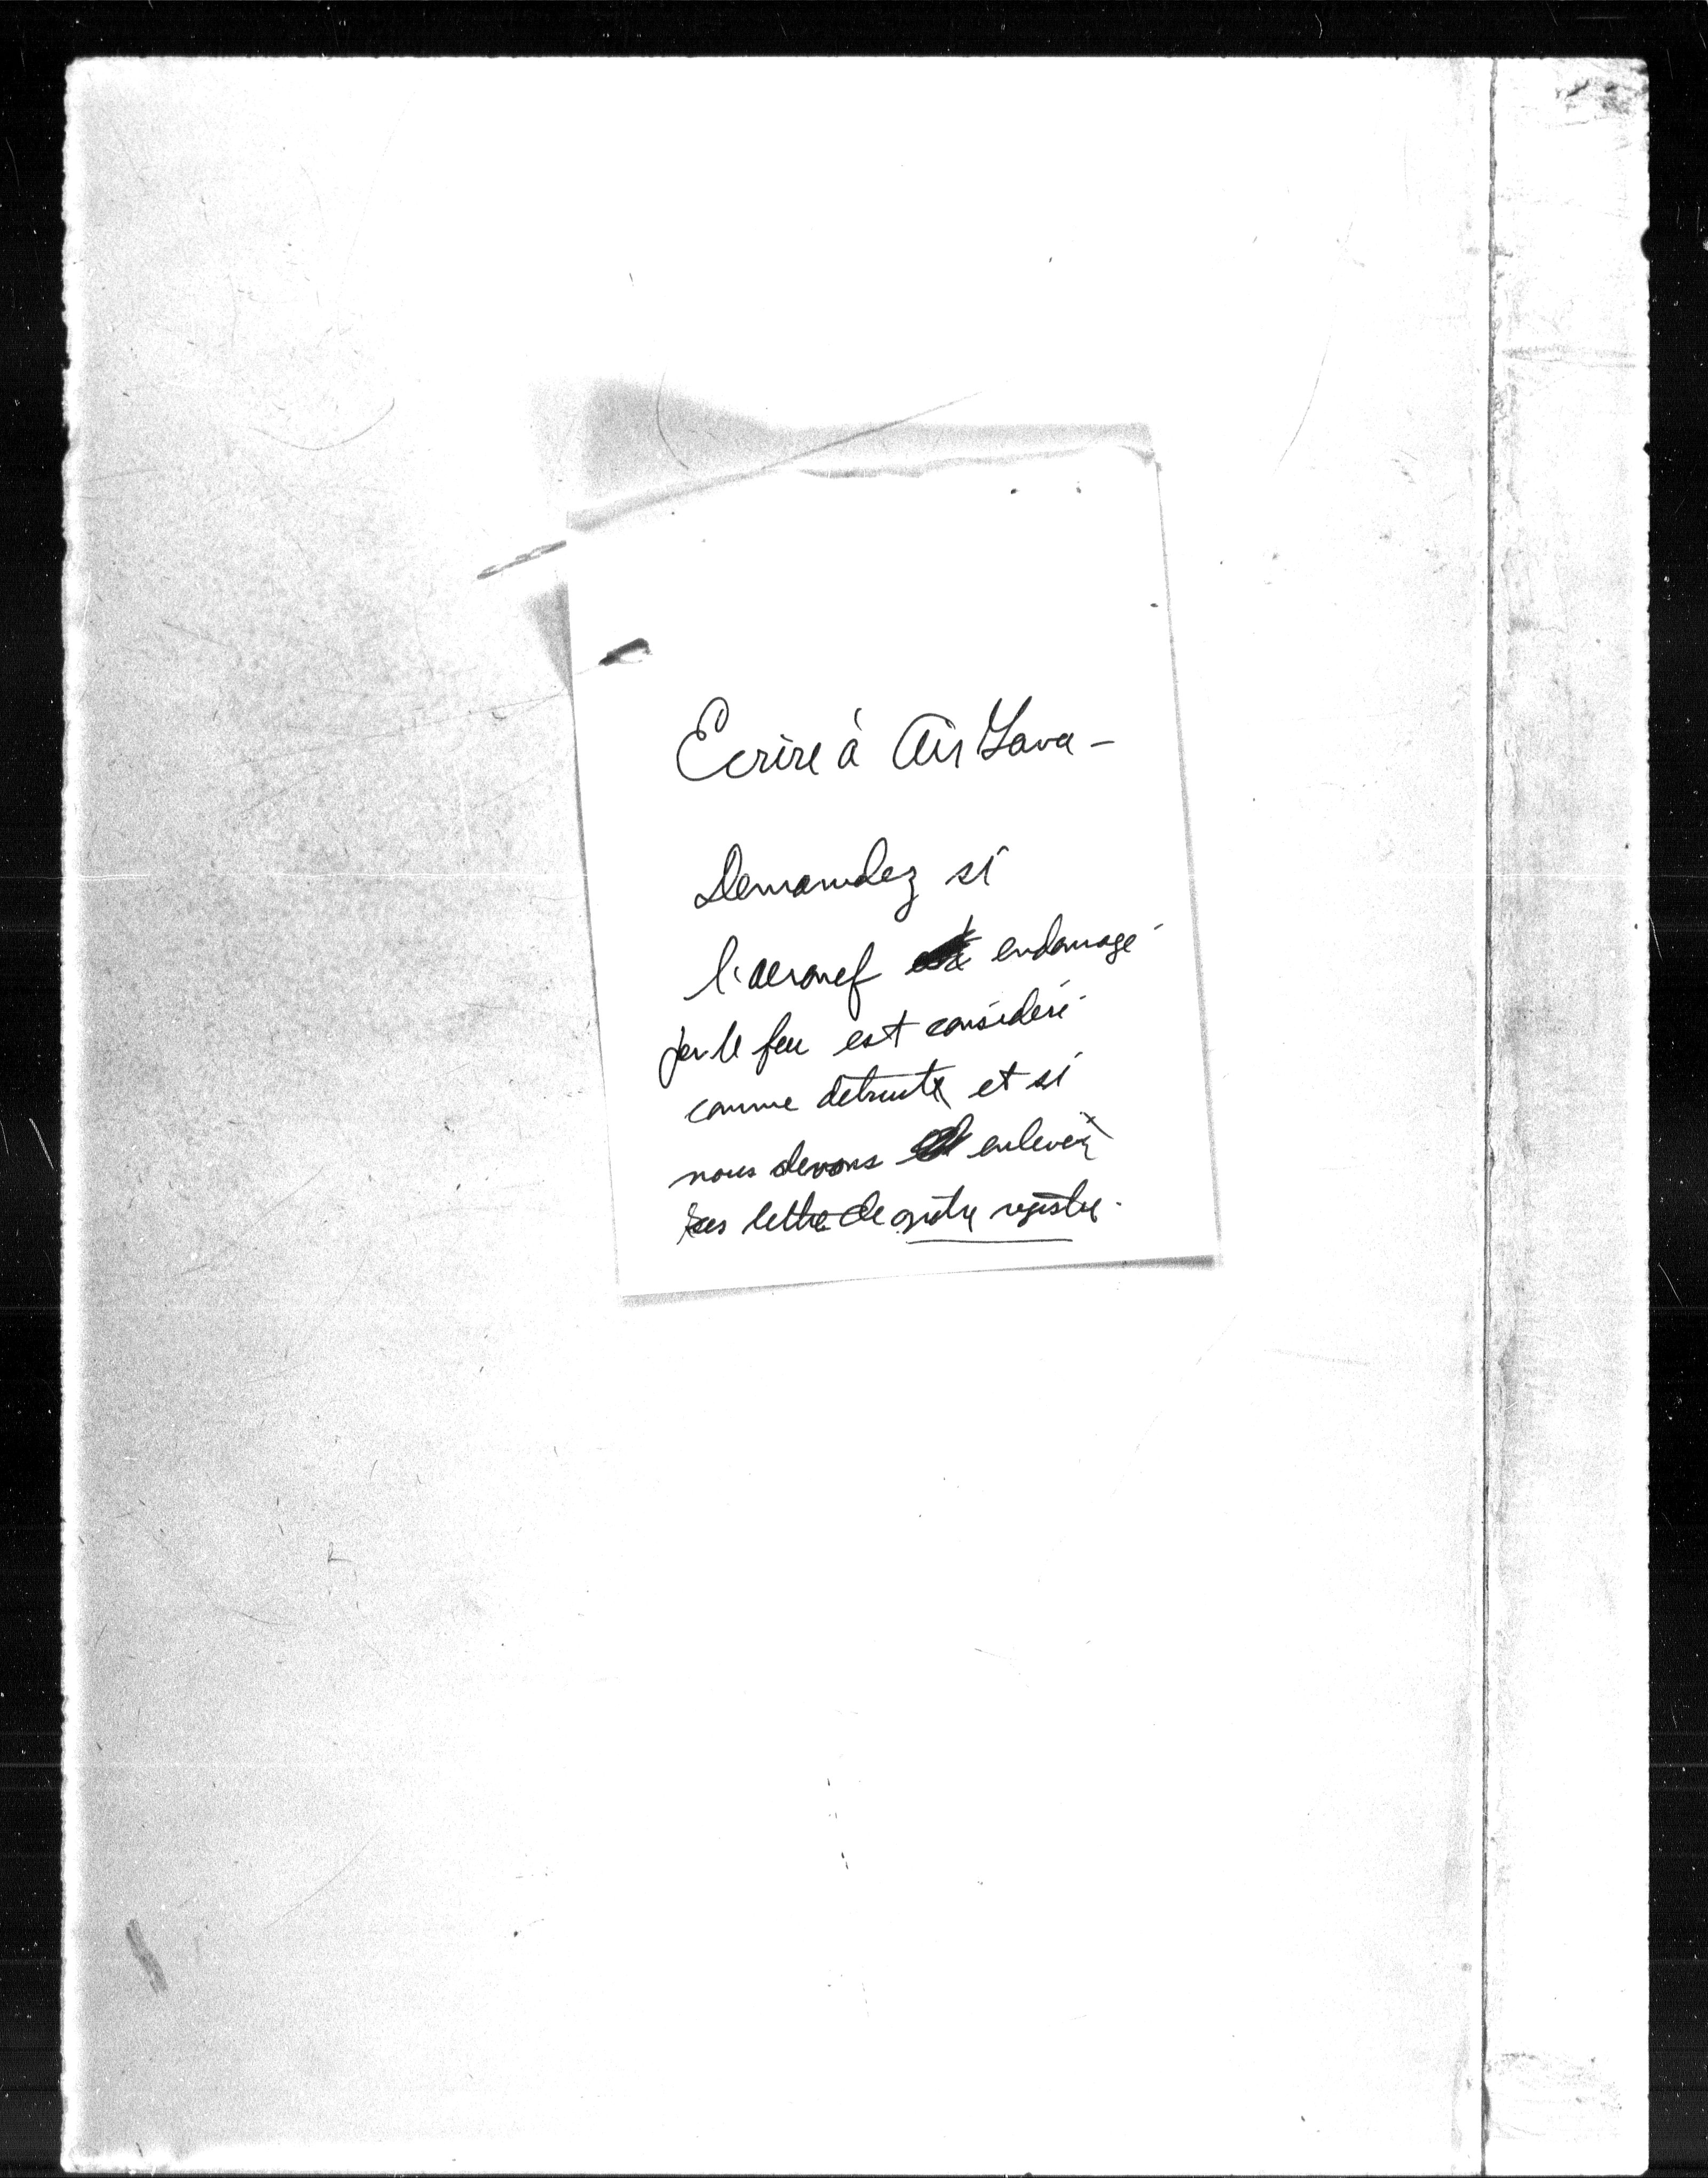 Ecrire à Air Lava -
Demandez si
l'aeronef endomagé
par le feu est considéré
comme détruit et si
nous devons enlever
ses lettre de notre registre.